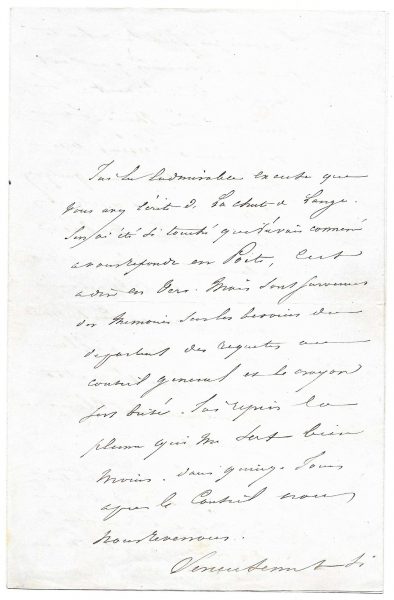 J'ai lu l'admirable excuse que
vous avez écrite à La chute d'un ange.
J'en ai été si touché que j'avais commencé
à vous répondre en Poète, c'est
à dire en Vers. Mais sont survenus
des Mémoires sur les besoins du
département des requêtes au
conseil general et le crayon
s'est brisé. J'ai repris la
plume qui me sert bien
moins. dans quinze Jours
après le Conseil nous
nous reverrons.